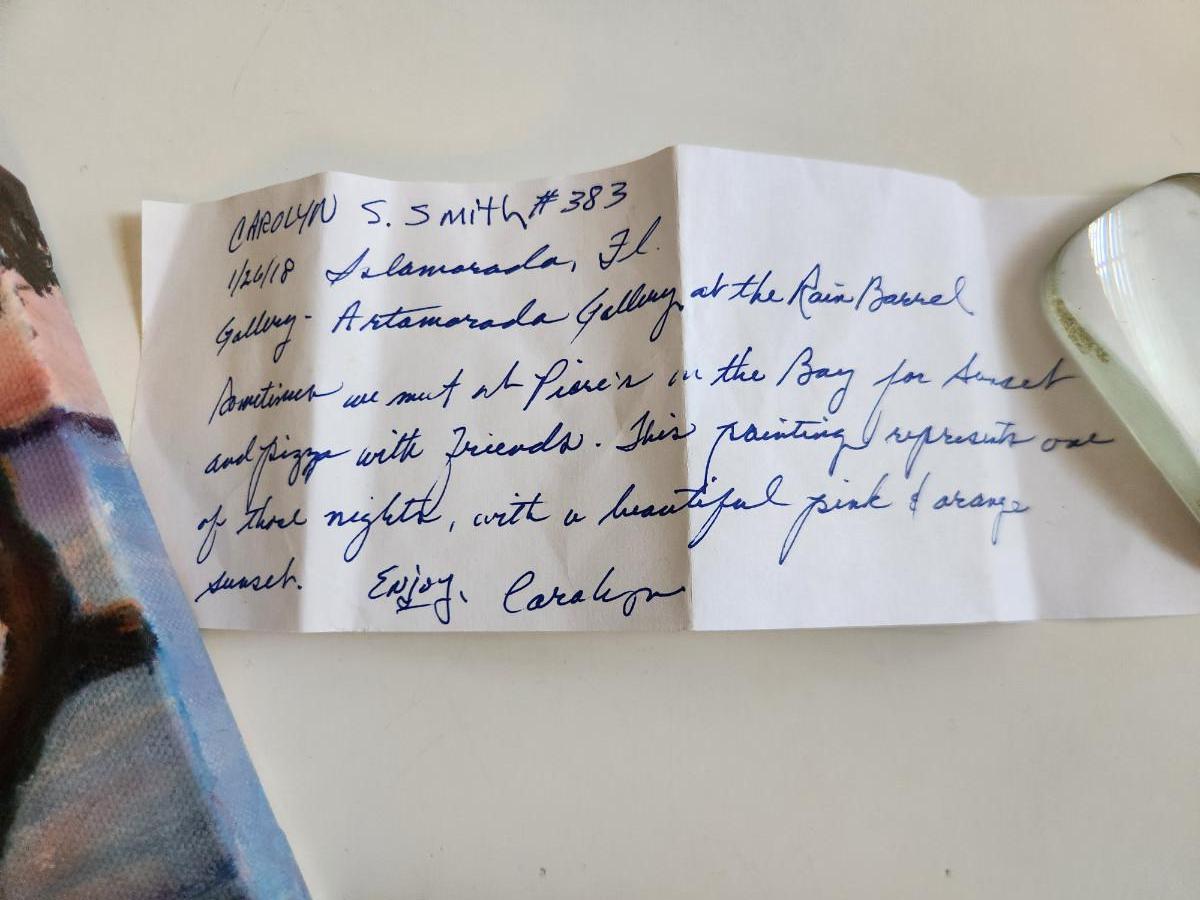 CAROLYN S. Smith #383
1/26/18 Islamorada, Fl.
Gallery - Artamorada Gallery at the Rain Barrel
Sometimes we meet at Pierre's in the Bay for Sunset
and pizza with friends. This painting represents one
of those nights, with a beautiful pink & orange
sunset. Enjoy, Carolyn